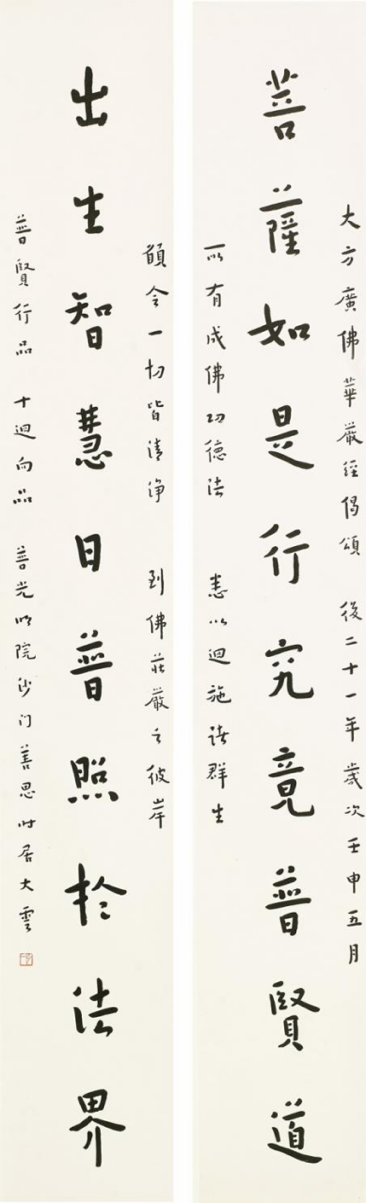 大方廣佛華嚴經偈頌　後二十一年歲次壬申五月
菩薩如是行究竟普賢道
所有成佛功德法　悉以迴施諸群生
願令一切皆清淨　到佛莊嚴之彼岸
出生智慧日普照於法界
普賢行品　十迴向品　普光明院沙门善思時居大雲